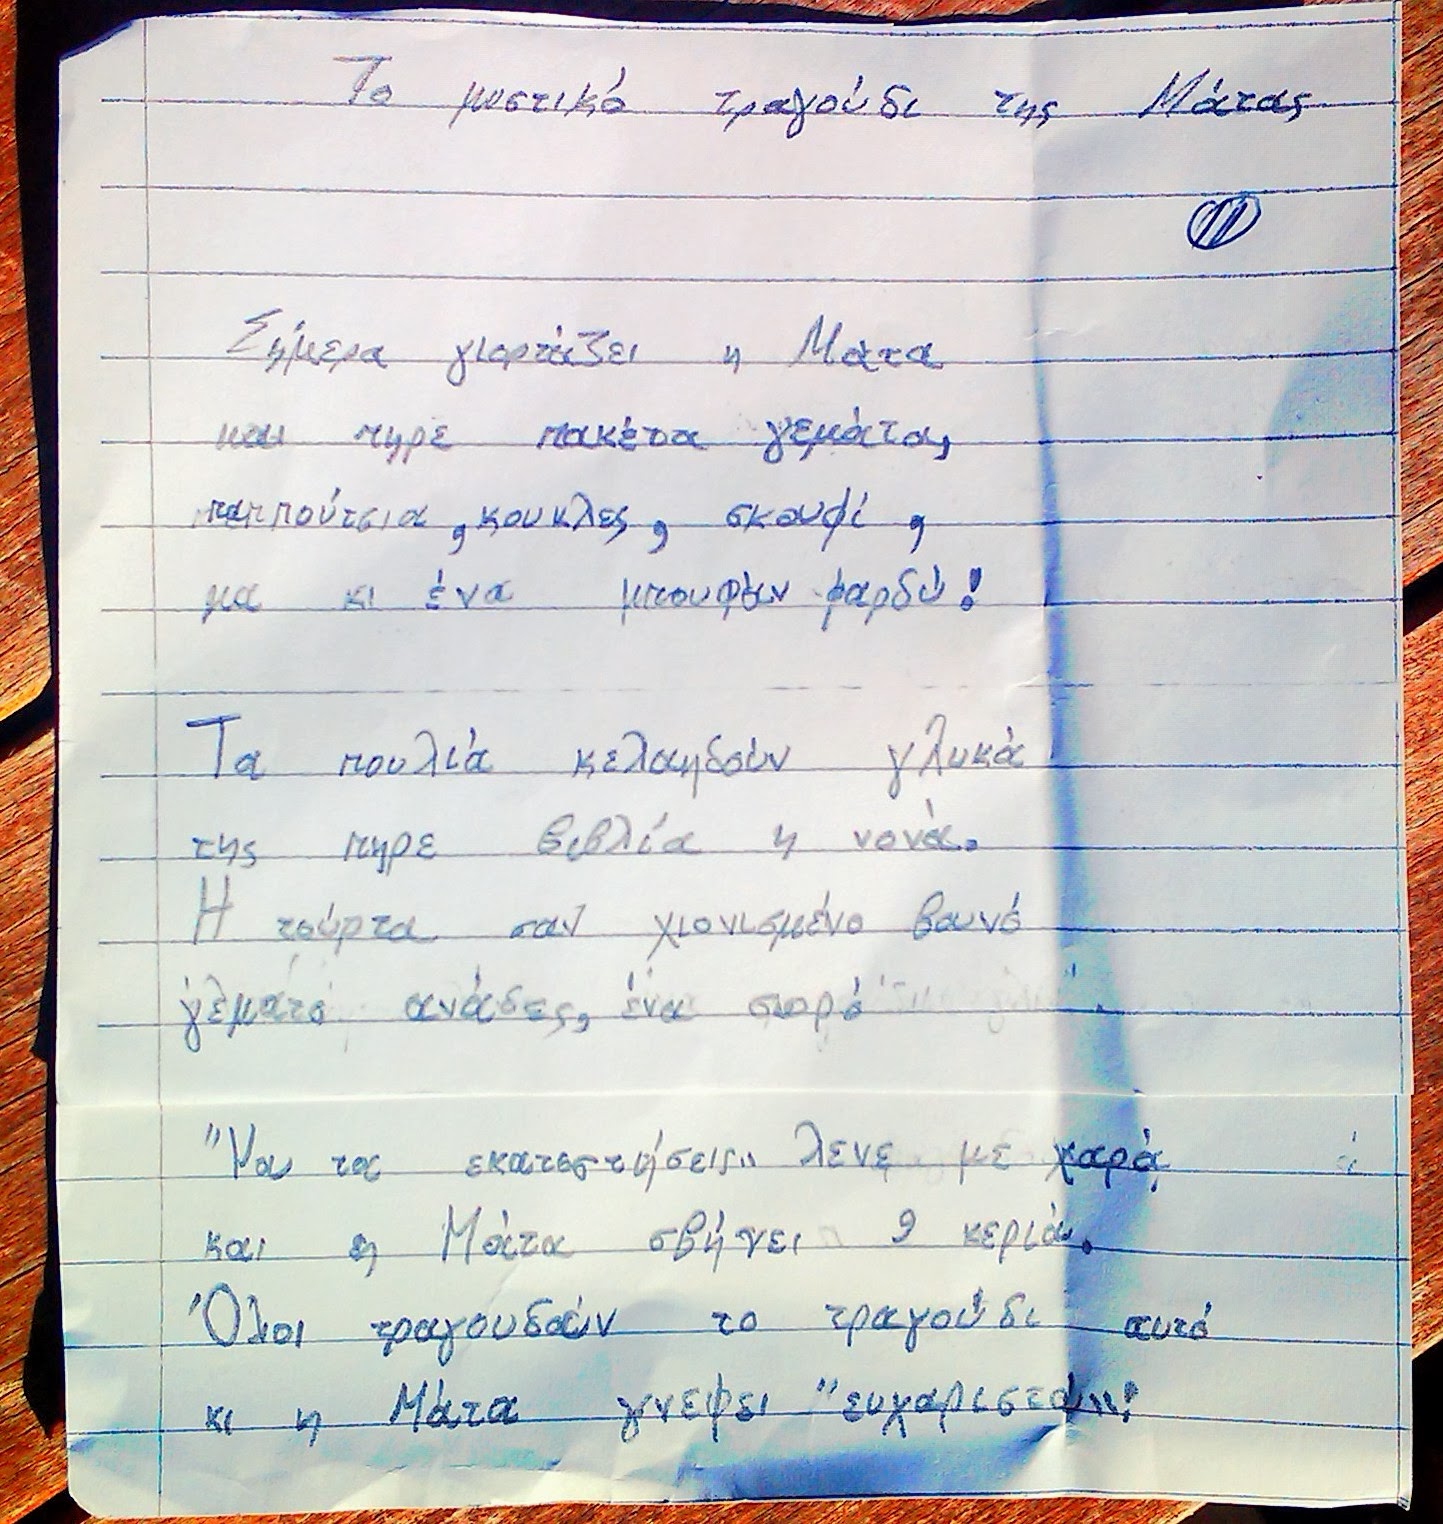 Το μυστικό τραγούδι της Μάτας
Σήμερα γιορτάζει η Μάτα
και πηρε πακέτα γεμάτα,
παππούτσια, κουκλες, σκουφί,
μα κι ένα μπουφάν φαρδύ!
Τα πουλιά κελαηδούν γλυκά
της πηρε βιβλία η νονά.
Η τούρτα σαν χιονισμένο βουνό
γεμάτο ανάδες, ένα σωρό
"Να τα εκατοστήσεις" λενε με χαρά
και η Μάτα σβήνει 9 κεριά.
Όλοι τραγουδούν το τραγούδι αυτό
κι η Μάτα γνεφει "ευχαριστώ"!